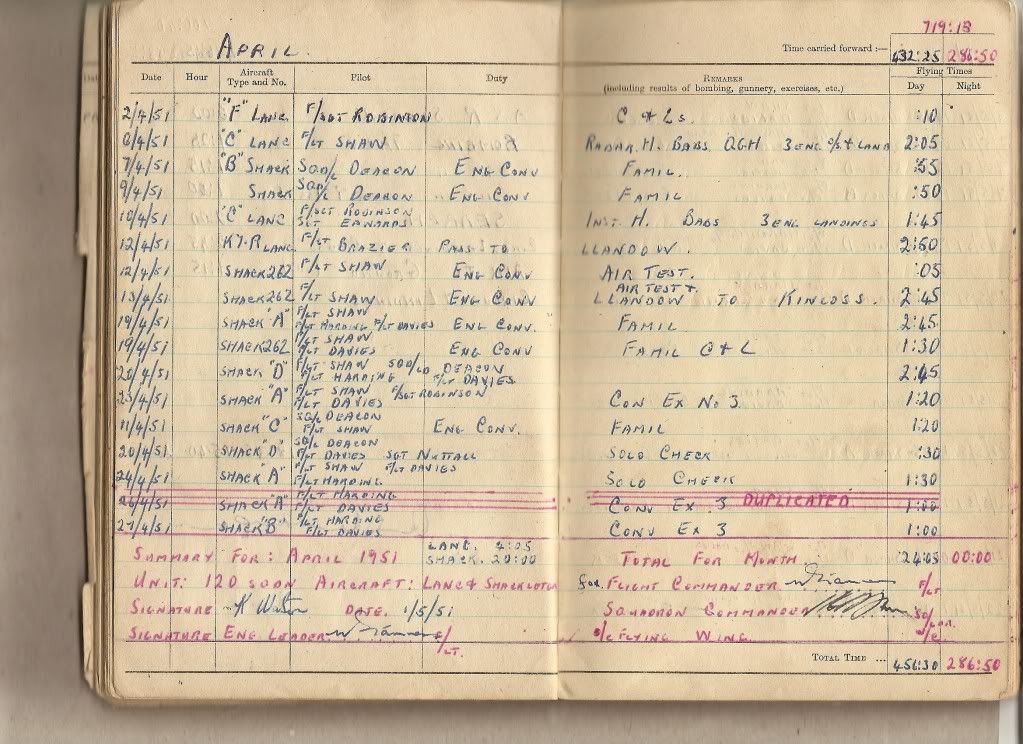 719:13
APRIL.
Time carried forward :— 432:25 286:50
Date Hour Aircraft Type and No. Pilot Duty REMARKS (including results of bombing, gunnery, exercises, etc.) Flying Times Day Night
2/4/51 "F" LANC F/SGT ROBINSON C & Ls. :10
6/4/51 "C" LANC F/LT SHAW RADAR. H. BABS QGH 3 ENG O/S & LAND 2:05
7/4/51 "B" SHACK SQD/L DEACON ENG CONV FAMIL. :55
9/4/51 SHACK SQD/L DEACON ENG CONV FAMIL :50
10/4/51 "C" LANC F/SGT ROBINSON SGT EDWARDS INST. H. BABS 3 ENG LANDINGS 1:45
12/4/51 K7-R LANC F/LT BRAZIER PASS TO LLANDOW.
12/4/51 SHACK 262 F/LT SHAW ENG CONV AIR TEST. :05
13/4/51 SHACK 262 F/LT SHAW ENG CONV AIR TEST & LLANDOW TO KINLOSS. 2:45
19/4/51 SHACK "A" F/LT SHAW F/LT HARDING F/LT DAVIES ENG CONV. FAMIL 2:45
19/4/51 SHACK 262 F/LT SHAW F/LT DAVIES ENG CONV FAMIL C & L 1:30
/4/51 SHACK "D" F/LT SHAW SQD/LD DEACON F/LT HARDING F/LT DAVIES 2:45
23/4/51 SHACK "A" F/LT SHAW F/SGT ROBINSON F/LT DAVIES CON EX NO 3. 1:20
11/4/51 SHACK "C" SQ/L DEACON F/LT SHAW ENG CONV. FAMIL 1:20
20/4/51 SHACK "D" SQ/L DEACON F/LT DAVIES SGT NUTTALL SOLO CHECK :30
24/4/51 SHACK "A" F/LT SHAW F/LT DAVIES F/LT HARDING SOLO CHECK 1:30
26/4/51 SHACK "A" F/LT HARDING F/LT DAVIES CONV EX. 3 DUPLICATED 1:00
27/4/51 SHACK "B" F/LT HARDING F/LT DAVIES CONV EX 3 1:00
SUMMARY FOR: APRIL 1951 LANC. 4:05 SHACK. 20:00 TOTAL FOR MONTH 24:05 00:00
UNIT: 120 SQDN AIRCRAFT: LANC & SHACKLETON for FLIGHT COMMANDER F/LT
SIGNATURE DATE. 1/5/51 SQUADRON COMMANDER
SIGNATURE ENG LEADER F/LT. O/C FLYING WING
TOTAL TIME ... 456:30 286:50